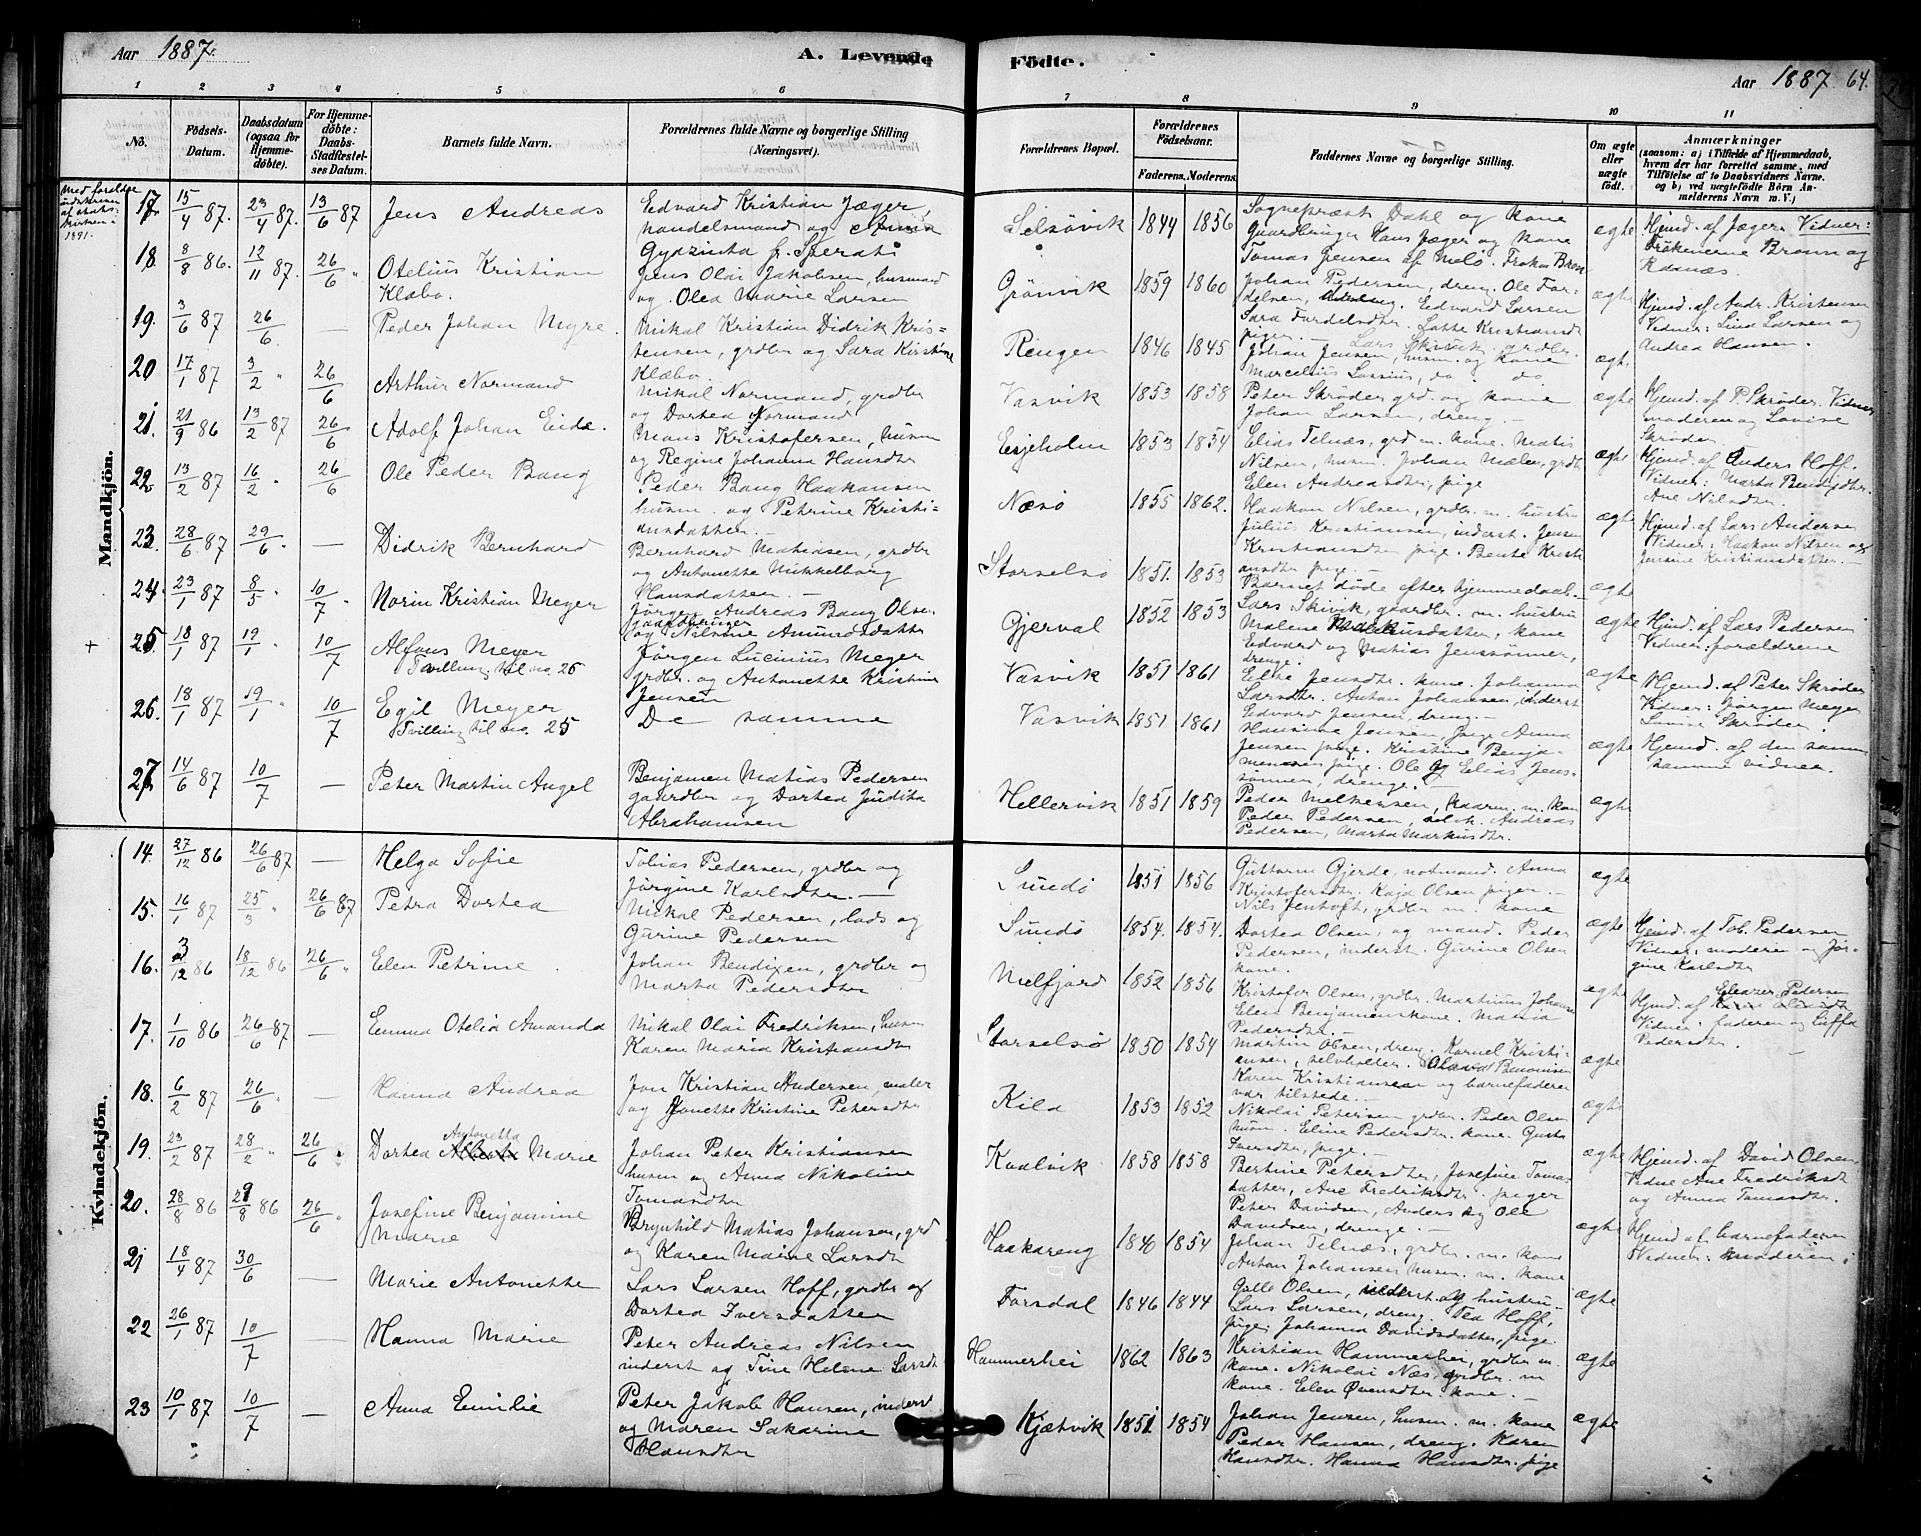 Aar 1887.
A. Levende Födte.
Aar 1887. 64.
1 2 3 4 5 6 7 8 9 10 11
No.
Födsels-
Datum.
Daabsdatum
(ogsaa for
Hjemme-
döbte).
For Hjemme-
döbte:
Daabs-
Stadfæstel-
ses Datum.
Barnets fulde Navn.
Forældrenes fulde Navne og borgerlige Stilling
(Næringsvei).
Forældrenes Bopæl.
Forældrenes
Födselsaar.
Faderens. Moderens.
Faddernes Navne og borgerlige Stilling.
Om ægte
eller
uægte
født.
Anmærkninger
(saasom: a) i Tilfælde af Hjemmedaab,
hvem der har forrettet samme, med
Tilföielse af to Daabsvidners Navne.
og b) ved uægtefödte Börn An-
melderens Navn m. V.)
Mandkjön.
17. 15/4 87. 23/4 87. 13/6 87 Jens Andreas
Edvard Kristian Jæger,
handelsmand og Anna
Gydzinta f. Sperati
Selsövik 1844 1856
Sognepræst Dahl og kone
Gaardbruger Hans Jæger og kone
Tomas Jensen af Melö.
ægte
Hjemd. af Jæger. Vidner:
Frökenerne Brown og
18. 8/8 86. 12/11 87. 26/6 " Otelius Kristian
Klæbo.
Jens Olai Jakobsen, husmand
og Olea Marie Larsen
Grönvik 1859 1860
Johan Pedersen, dreng. Ole For-
delsen, Edvard Larsen
ægte
Hjemd. af Andr. Kristensen
Vidner: Lina Larsen og
Andrea Hansen.
19. 3/6 87 26/6. — Peder Johan Myre.
Mikal Kristian Didrik Kris-
tensen, grdbr og Sara Kirstine
Klæbo.
Ringen 1846 1845
Johan Jensen, husm. og kone
ægte
20 17/1 87 3/2 " 26/6 Arthur Normand
Mikal Normand, grdbr
og Dortea Normand
Vasvik 1853 1858
Peter Skröder grd. og kone
Johan Larsen, dreng. —
ægte
Hjemd. af P. Skröder. Vidner
moderen og Lovise
Skröder
21. 21/9 86 13/2 87 26/6 Adolf Johan Eide.
Mons Kristofersen, husm
og Regine Johanna Hansdtr
Esjeholm 1853 1854
Elias Telnæs, grd m. kone. Matis
Nilsen, husm. Johan Mælen, grdbr
Elen Andreasdtr, pige
ægte
Hjemd. af Anders Hoff.
Vidner: Marta Bendigdtr.
Ane Nilsdtr.
22. 13/2 87 16/2 " 26/6 Ole Peder Bang
Peder Bang Haakonsen
husm. og Petrine Kristi-
ansdatter. —
Næsö 1855 1862.
Haakon Nilsen, grdbr. m. hustru
Julius Kristiansen, inderst. Jensine
Kristiansdtr pige. Bente Kristi-
ansdtr pige. —
ægte
Hjemd. af Lars Andersen
Vidner: Haakon Nilsen og
Jensine Kristiansdatter. —
23. 28/6 87 29/6 " — Didrik Bernhard
Bernhard Matiasen, grdbr
og Antonette Mikkelborg
Hansdatter. —
Storselsö 1851. 1853
Barnet döde efter hjemmedaab. —
ægte
24. 23/1 87 8/5 " 10/7 " Norin Kristian Meyer
Jörgen Andreas Bang Olsen
gaardbruger
og Nilsine Amundsdatter
Gjerval 1852 1853
Lars Skivik, gaardbr. m. hustru
Edvard og Matias Jenssönner,
drenge.
ægte
Hjemd. af Lars Pedersen
Vidner: forældrene
+ 25. 18/1 87 19/1 " 10/7 Alfons Meyer
Tvilling til no. 26
Jörgen Lucinius Meyer
grdbr. og Antonette Kristine
Jensen
Vasvik 1851 1861
Elise Jensdtr. kone. Johanna
Larsdtr. Anton Johansen, inderst
Edvard Jensen, dreng. —
ægte
Hjemd. af Peter Skröder
Vidner: Jörgen Meyer
Lovise Skröder.
26. 18/1 87 19/1 " 10/7 Egil Meyer
Tvilling til no. 25
De samme
Vasvik 1851 1861
Hansine Jensen, pige Anna
Jensen pige. Kristine Benja-
mensen pige. Ole og Elias Jens-
sönner, drenge. —
ægte
Hjemd. af den samme
samme vidner.
27. 14/6 87 10/7 — Peter Martin Angel
Benjamen Matias Pedersen
gaardbr og Dortea Judita
Abrahamsen
Hellervik 1851 1859
Peder Pedersen, Andreas
Pedersen, Marta Markusdtr.
ægte
Kvindekjön.
14. 27/12 86 26/6 87 — Helga Sofie
Tobias Pedersen, grdbr og
Jörgine Karlsdtr. —
Sundö 1851 1856
Guttorm Gjerde, notmand. Anna
Kristofersdtr. Kaja Olsen piger. —
ægte
15. 16/1 87 25/3 " 26/6 87 Petra Dortea
Mikal Pedersen, lods og
Gurine Pedersen
Sundö 1854. 1854.
Nils Jentoft, grdbr m. kone
Dortea Olsen, og mand. Peder
Pedersen, inderst. Gurine Olsen
kone.
ægte
Hjemd. af Tob. Pedersen
Vidner: moderen og Jör-
gine Karlsdtr
16. 3/12 86 18/12 86 26/6 " Elen Petrine
Johan Bendixen, grdbr og
Marta Pedersdtr
Melfjord 1852 1856
Kristofer Olsen, grdbr. Martinus Johansen
Elen Benjamensen kone. Maria
Pedersdtr. —
ægte
Eleazer Pedersen
Hjemd. af
Vidner: faderen og
Pedersdtr.
17. 1/10 86 26/6 87 — Emma Otelia Amanda
Mikal Olai Fredriksen, husm
Karen Maria Kristiansdtr
Storselsö 1850 1854
Martin Olsen, dreng. Kornel Kristi-
ansen, selvholder.
Karen Kristiansen og barnefaderen
var tilstede. —
ægte
18. 6/2 87 26/6 " — Hanna Andrea
Jon Kristian Andersen, maler
og Jonette Kristine Petersdtr
Kila 1853 1852
Nikolai Petersen grdbr. Peder Olsen
husm. Eline Pedersdtr. kone. Gusta
Iversdtr, pige.
ægte
19. 23/2 87 28/2 " 26/6 Dortea Antonetta Marie
Johan Peter Kristiansen
husm og Anna Nikoline
Tomasdtr
Kvalvik 1858 1858
Bertine Petersdtr, Josefine Tomas-
datter, Ane Fredriksdtr. piger
Peter Davidsen, Anders og Ole
Davidsen, drenge. —
ægte
Hjemd. af David Olsen
Vidne Ane Fredriksdt
og Anna Tomasdtr.
20. 28/8 86 29/8 86 26/6 " Josefine Benjamine
Marie
Brynhild Matias Johansen, grd
og Karen Marie Larsdt
Haakareng 1840 1854
Johan Telnæs, grdbr. m. kone
Anton Johansen husm. m. kone
ægte
Hjemd af barnefaderen
Vidner: moderen
21 18/4 87 30/6 — Marie Antonette
Lars Larsen Hoff, grdbr og
Dortea Iversdatter
Forsdal 1846 1844
Olsen, inderst og hustru-
Lars Larsen, dreng. Tea Hoff,
pige; Johanna Davidsdatter, pige.
ægte
22 26/1 87 10/7 — Hanna Marie
Peter Andreas Nilsen
inderst og Tine Helene Larsdt
Hammerhei 1862 1863
Kristian Hammerhei, grdbr m.
kone. Nikolai Næs, grdbr. m
kone. Elen Ovensdtr. kone. —
ægte
23 10/1 87 10/7 — Anna Emilie
Peter Jakob Hansen, inderst
og Maren Sakarine
Hansdtr
Kjætvik 1851 1854
Johan Jensen, husm. m. kone
Peder Hansen, dreng. Karen
Hansdtr. Hanna Hansdtr. pige
ægte